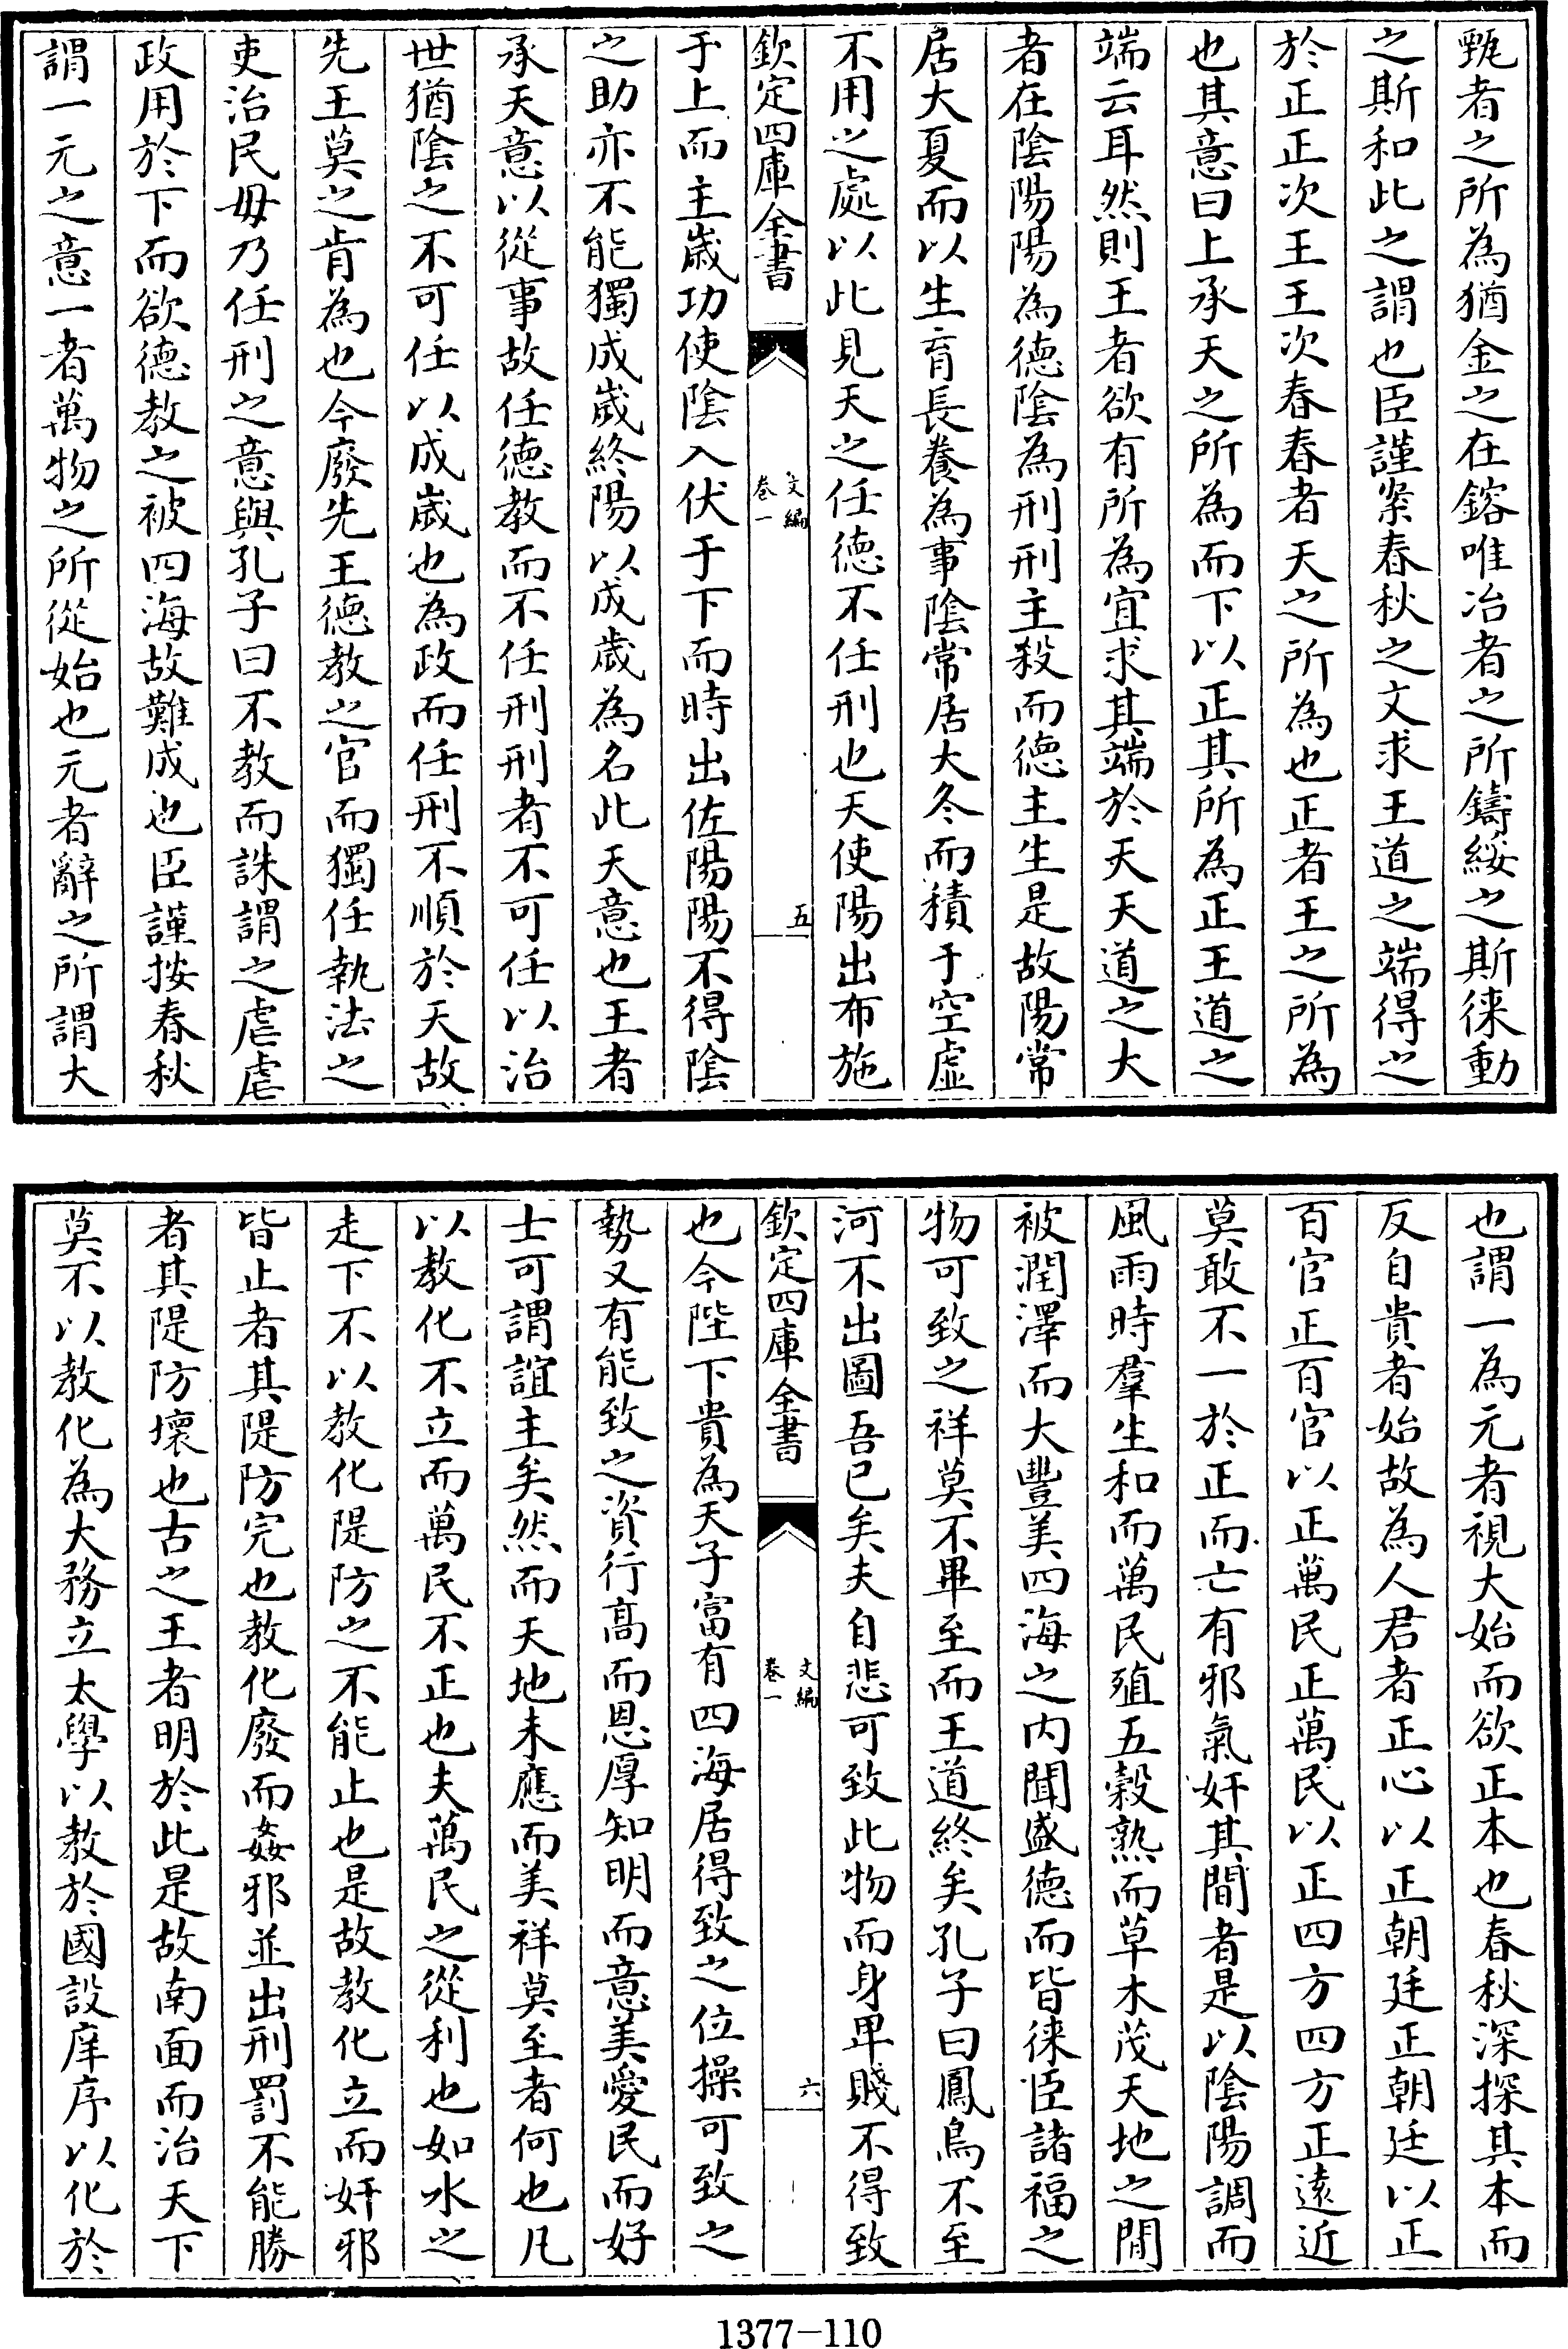 甄者之所為猶金之在鎔唯冶者之所鑄綏之斯徠動
之斯和此之謂也臣謹案春秋之文求王道之端得之
於正正次王王次春春者天之所為也正者王之所為
也其意曰上承天之所為而下以正其所為正王道之
端云耳然則王者欲有所為宜求其端於天天道之大
者在陰陽陽為德陰為刑刑主殺而德主生是故陽常
居大夏而以生育長養為事陰常居大冬而積于空虛
不用之處以此見天之任德不任刑也天使陽出布施
欽定四庫全書
文編
卷一
五
于上而主歲功使陰入伏于下而時出佐陽陽不得陰
之助亦不能獨成歲終陽以成歲為名此天意也王者
承天意以從事故任德教而不任刑刑者不可任以治
世猶陰之不可任以成歲也為政而任刑不順於天故
先王莫之肯為也今廢先王德教之官而獨任執法之
吏治民毋乃任刑之意與孔子曰不教而誅謂之虐虐
政用於下而欲德教之被四海故難成也臣謹按春秋
謂一元之意一者萬物之所從始也元者辭之所謂大
也謂一為元者視大始而欲正本也春秋深探其本而
反自貴者始故為人君者正心以正朝廷正朝廷以正
百官正百官以正萬民正萬民以正四方四方正遠近
莫敢不一於正而亡有邪氣奸其間者是以陰陽調而
風雨時羣生和而萬民殖五穀熟而草木茂天地之間
被潤澤而大豐美四海之內聞盛德而皆徠臣諸福之
物可致之祥莫不畢至而王道終矣孔子曰鳳鳥不至
河不出圖吾已矣夫自悲可致此物而身卑賤不得致
欽定四庫全書
文編
卷一
六
也今陛下貴為天子富有四海居得致之位操可致之
勢又有能致之資行高而恩厚知明而意美愛民而好
士可謂誼主矣然而天地未應而美祥莫至者何也凡
以教化不立而萬民不正也夫萬民之從利也如水之
走下不以教化隄防之不能止也是故教化立而奸邪
皆止者其隄防完也教化廢而姦邪並出刑罰不能勝
者其隄防壞也古之王者明於此是故南面而治天下
莫不以教化為大務立太學以教於國設庠序以化於
1377-110